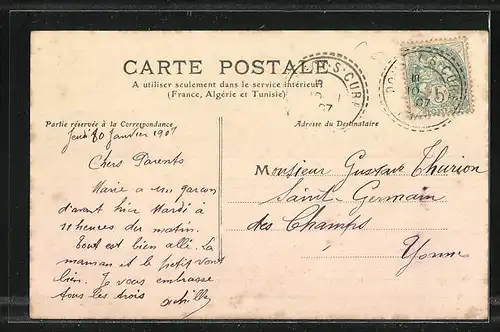 CARTE POSTALE
A utiliser seulement dans le service intérieur
(France, Algérie et Tunisie)
Partie réservée à la Correspondance
Adresse du Destinataire
Jeudi 10 Janvier 1907
Chers Parents
Marie a un garçon
d'avant hier Mardi à
11 heures du matin.
Tout est bien allé. La
maman et le petit vont
bien. Je vous embrasse
tous les trois Achille
Monsieur Gustave Thurion
Saint-Germain
des Champs
Yonne
5
10
07